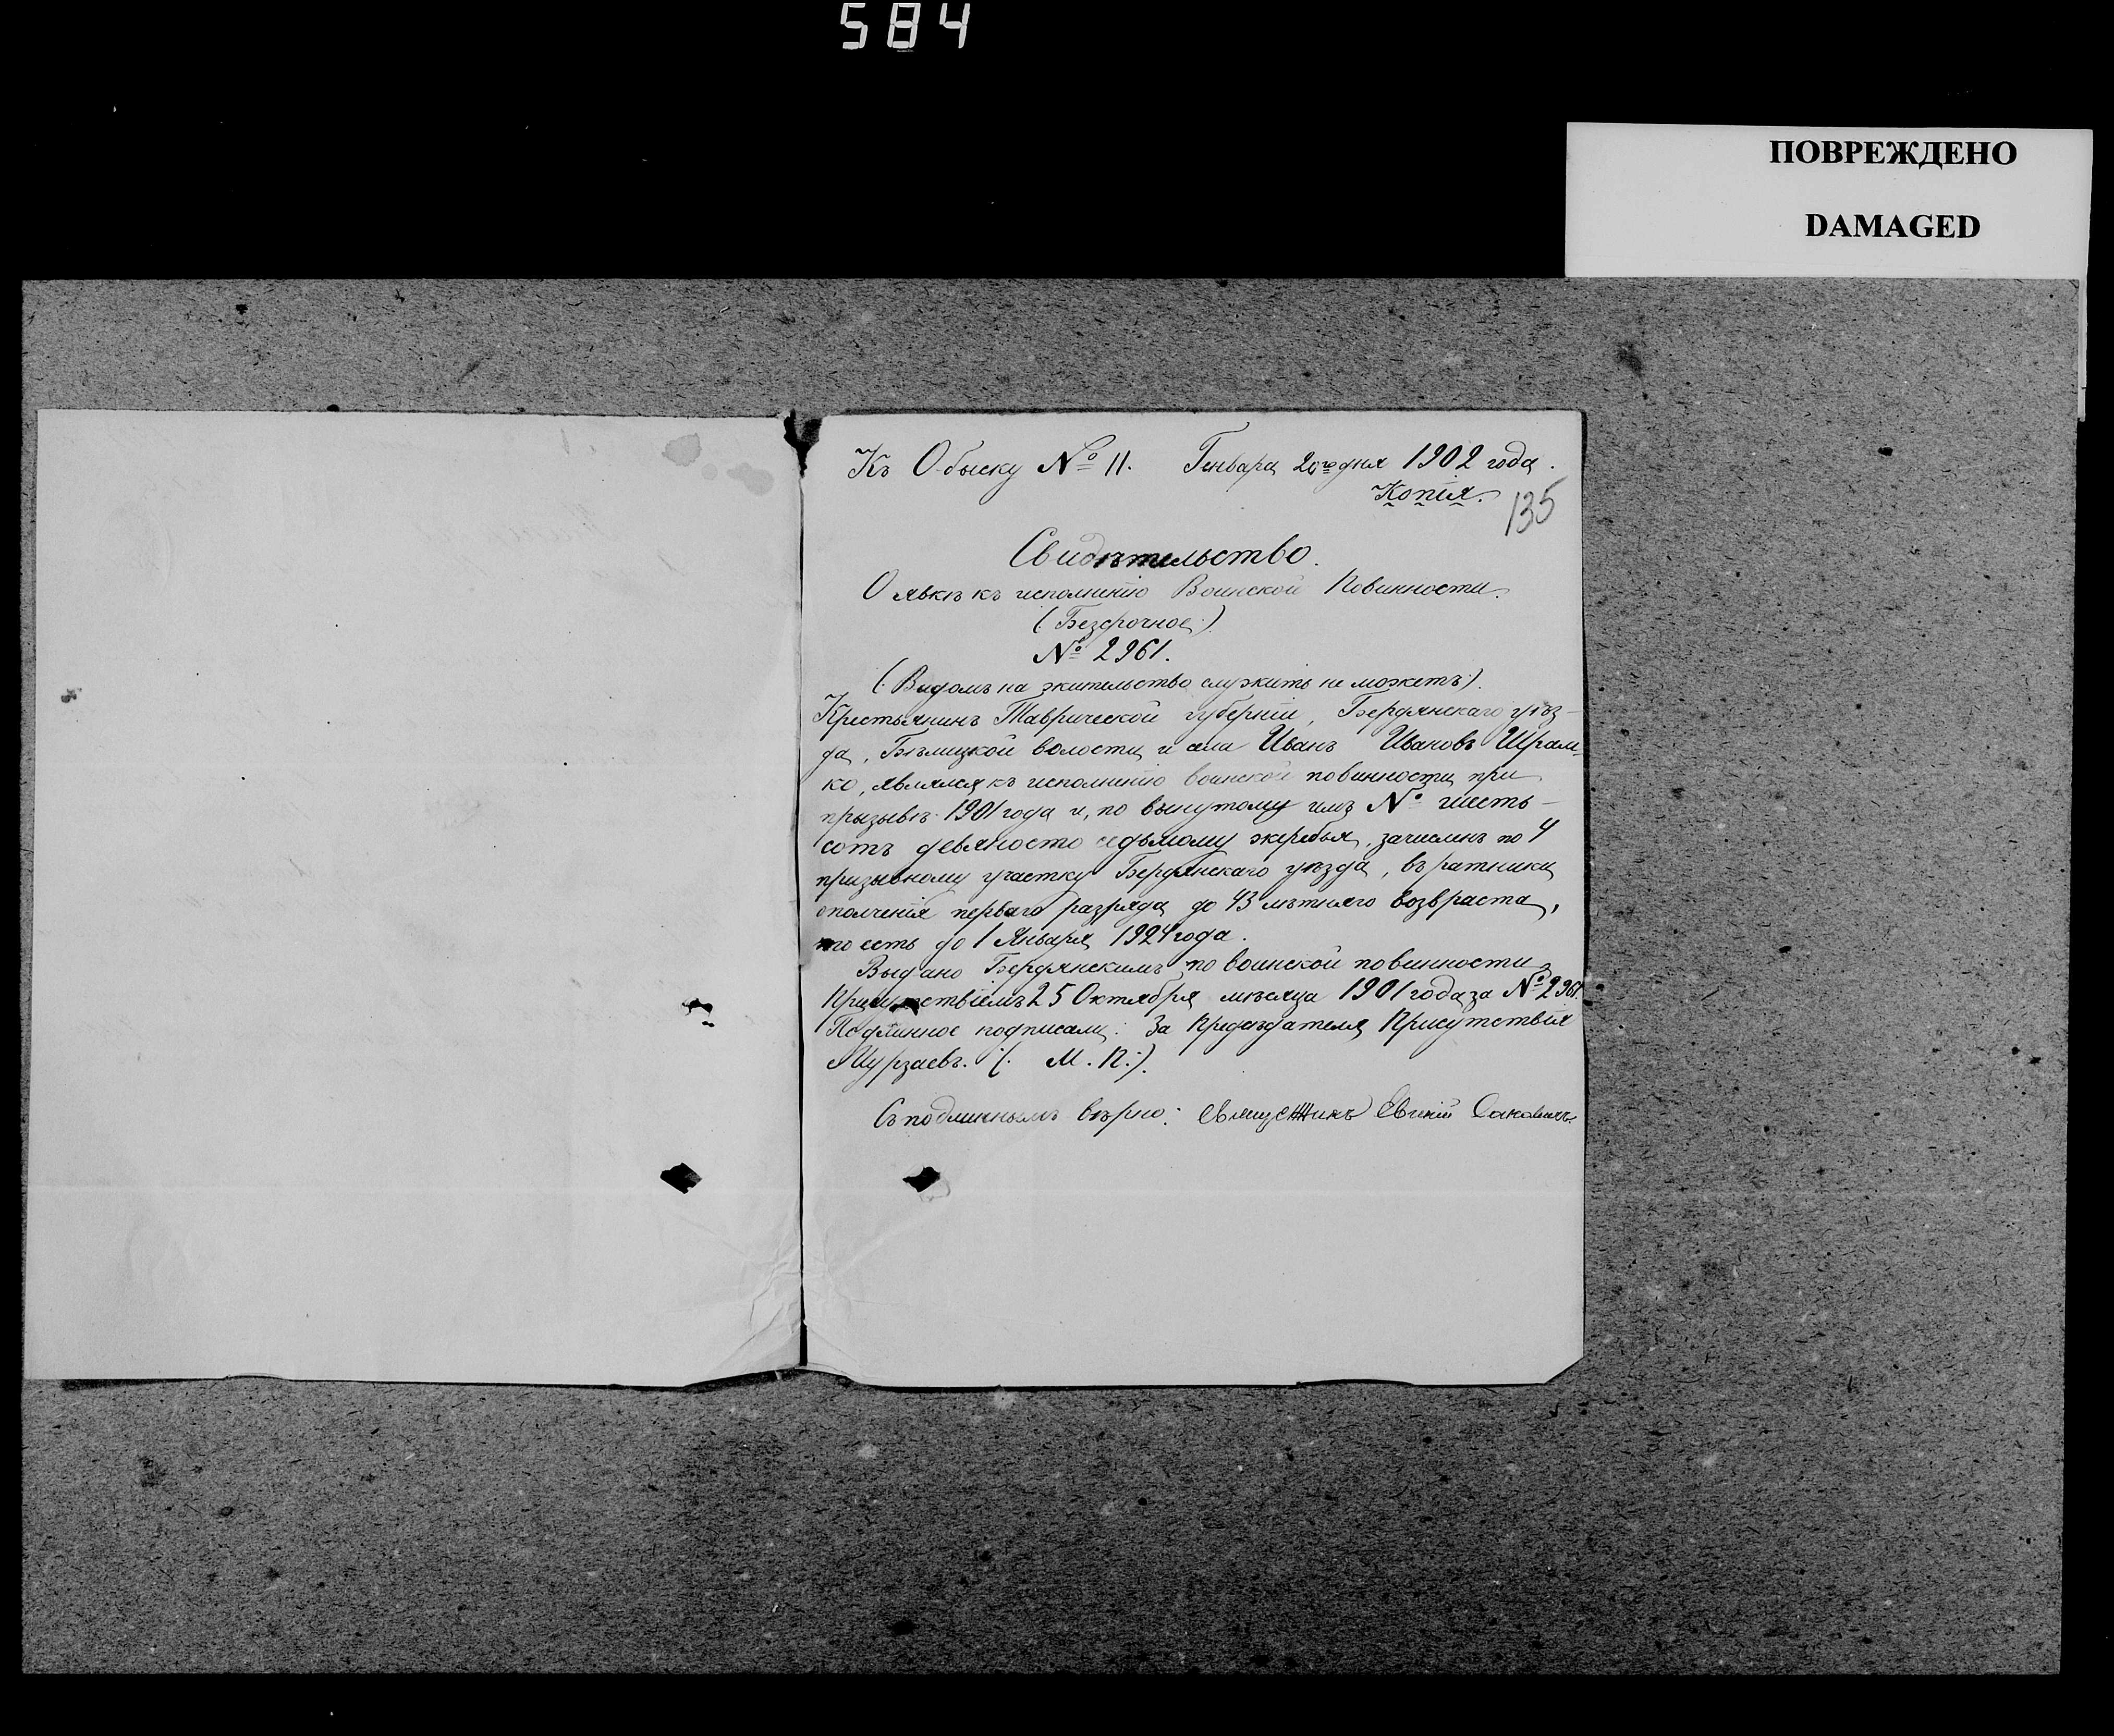 584
ПОВРЕЖДЕНО
DAMAGED
Къ Обыску № 11. Генваря 20го дня 1902 года.
Копія.
135
Свидѣтельство.
О явкѣ къ исполненію Воинской Повинности.
(Безсрочное)
№ 2961.
(Видомъ на жительство служить не можетъ).
Крестьянинъ Таврической губерніи, Бердянскаго уѣз-
да, волости и села Иванъ Ивановъ Шрам-
ко, являлся къ исполненію воинской повинности при
призывѣ 1901 года и, по вынутому имъ № шесть-
сотъ девяносто седьмому жеребья, зачисленъ по 4
призывному участку Бердянскаго уѣзда, въ ратники
ополченія перваго разряда до 43 лѣтняго возвраста,
то есть до 1 Января 1924 года.
Выдано Бердянскимъ по воинской повинности
Присутствіемъ 25 Октября мѣсяца 1901 года за № 2961.
Подлинное подписали: За Предсѣдателя Присутствія
Мурзаевъ. (М.П.).
Съ подлиннымъ вѣрно: Священникъ Евгеній